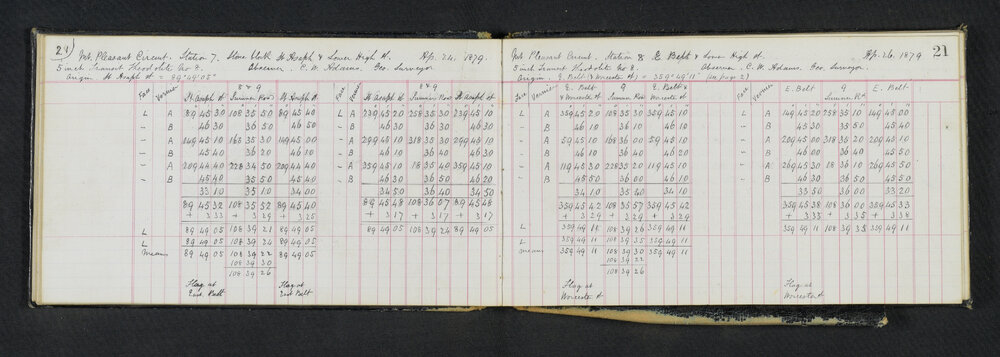 21)
Mt. Pleasant Circuit. Station 7. Stone block St Asaph & Lower High St. Ap. 24. 1879.
5 inch Transit Theodolite No 2. Observer. C. W. Adams. Geo. Surveyor
Origin St Asaph St = 89° 49' 05"
Face Vernier 8 & 9 Face Vernier 8 & 9
St Asaph St Sumner Road St Asaph St St Asaph St Sumner Road St Asaph St
L A 89 45 30 108 35 50 89 45 40 L A 239 45 20 258 35 30 239 45 10
- B 46 30 36 50 46 50 - B 46 30 36 30 46 30
- A 149 45 10 168 35 30 149 45 00 - A 299 46 10 318 35 30 299 45 10
- B 45 40 36 20 46 10 - B 46 40 36 40 46 30
- A 209 44 40 228 34 50 209 44 40 - A 359 45 10 18 35 40 359 45 10
- B 45 40 35 50 45 40 - B 46 30 36 50 46 20
33 10 35 10 34 00 34 50 36 40 34 50
89 45 32 108 35 52 89 45 40 89 45 48 108 36 07 89 45 48
+ 3 33 + 3 29 + 3 25 + 3 17 + 3 17 + 3 17
L 89 49 05 108 39 21 89 49 05 89 49 05 108 39 24 89 49 05
L 89 49 05 108 39 24 89 49 05
Means 89 49 05 108 39 22 89 49 05
108 39 30
108 39 26
Flag at East Belt Flag at East Belt
21
Mt. Pleasant Circuit. Station 8 E Belt & Lower High St. Ap. 24. 1879
5 inch Transit Theodolite No 2. Observer. C. W. Adams. Geo. Surveyor
Origin. E. Belt & Worcester St = 359° 49' 11" (see page 2)
Face Vernier E. Belt & Worcester St 9 Sumner Road E Belt & Worcester St Face Vernier E. Belt 9 Sumner Rd E. Belt
L A 359 45 20 108 35 30 359 45 10 L A 149 45 20 258 35 10 149 45 00
- B 46 10 36 10 46 10 - B 45 30 35 50 45 40
- A 59 45 10 168 36 00 59 45 10 - A 209 45 00 318 35 20 209 45 00
- B 46 10 36 40 46 20 - B 46 00 36 40 45 50
- A 119 45 30 228 35 20 119 45 10 - A 269 45 30 18 36 10 269 45 00
- B 45 50 36 00 46 10 - B 46 30 36 50 45 50
34 10 35 40 34 10 33 50 36 00 33 20
359 45 42 108 35 57 359 45 42 359 45 38 108 36 00 359 45 33
+ 3 29 + 3 29 + 3 29 + 3 33 + 3 35 + 3 38
L 359 49 11 108 39 26 359 49 11 359 49 11 108 39 35 359 49 11
L 359 49 11 108 39 35 359 49 11
means 359 49 11 108 39 30 359 49 11
108 39 22
108 39 26
Flag at Worcester St Flag at Worcester St